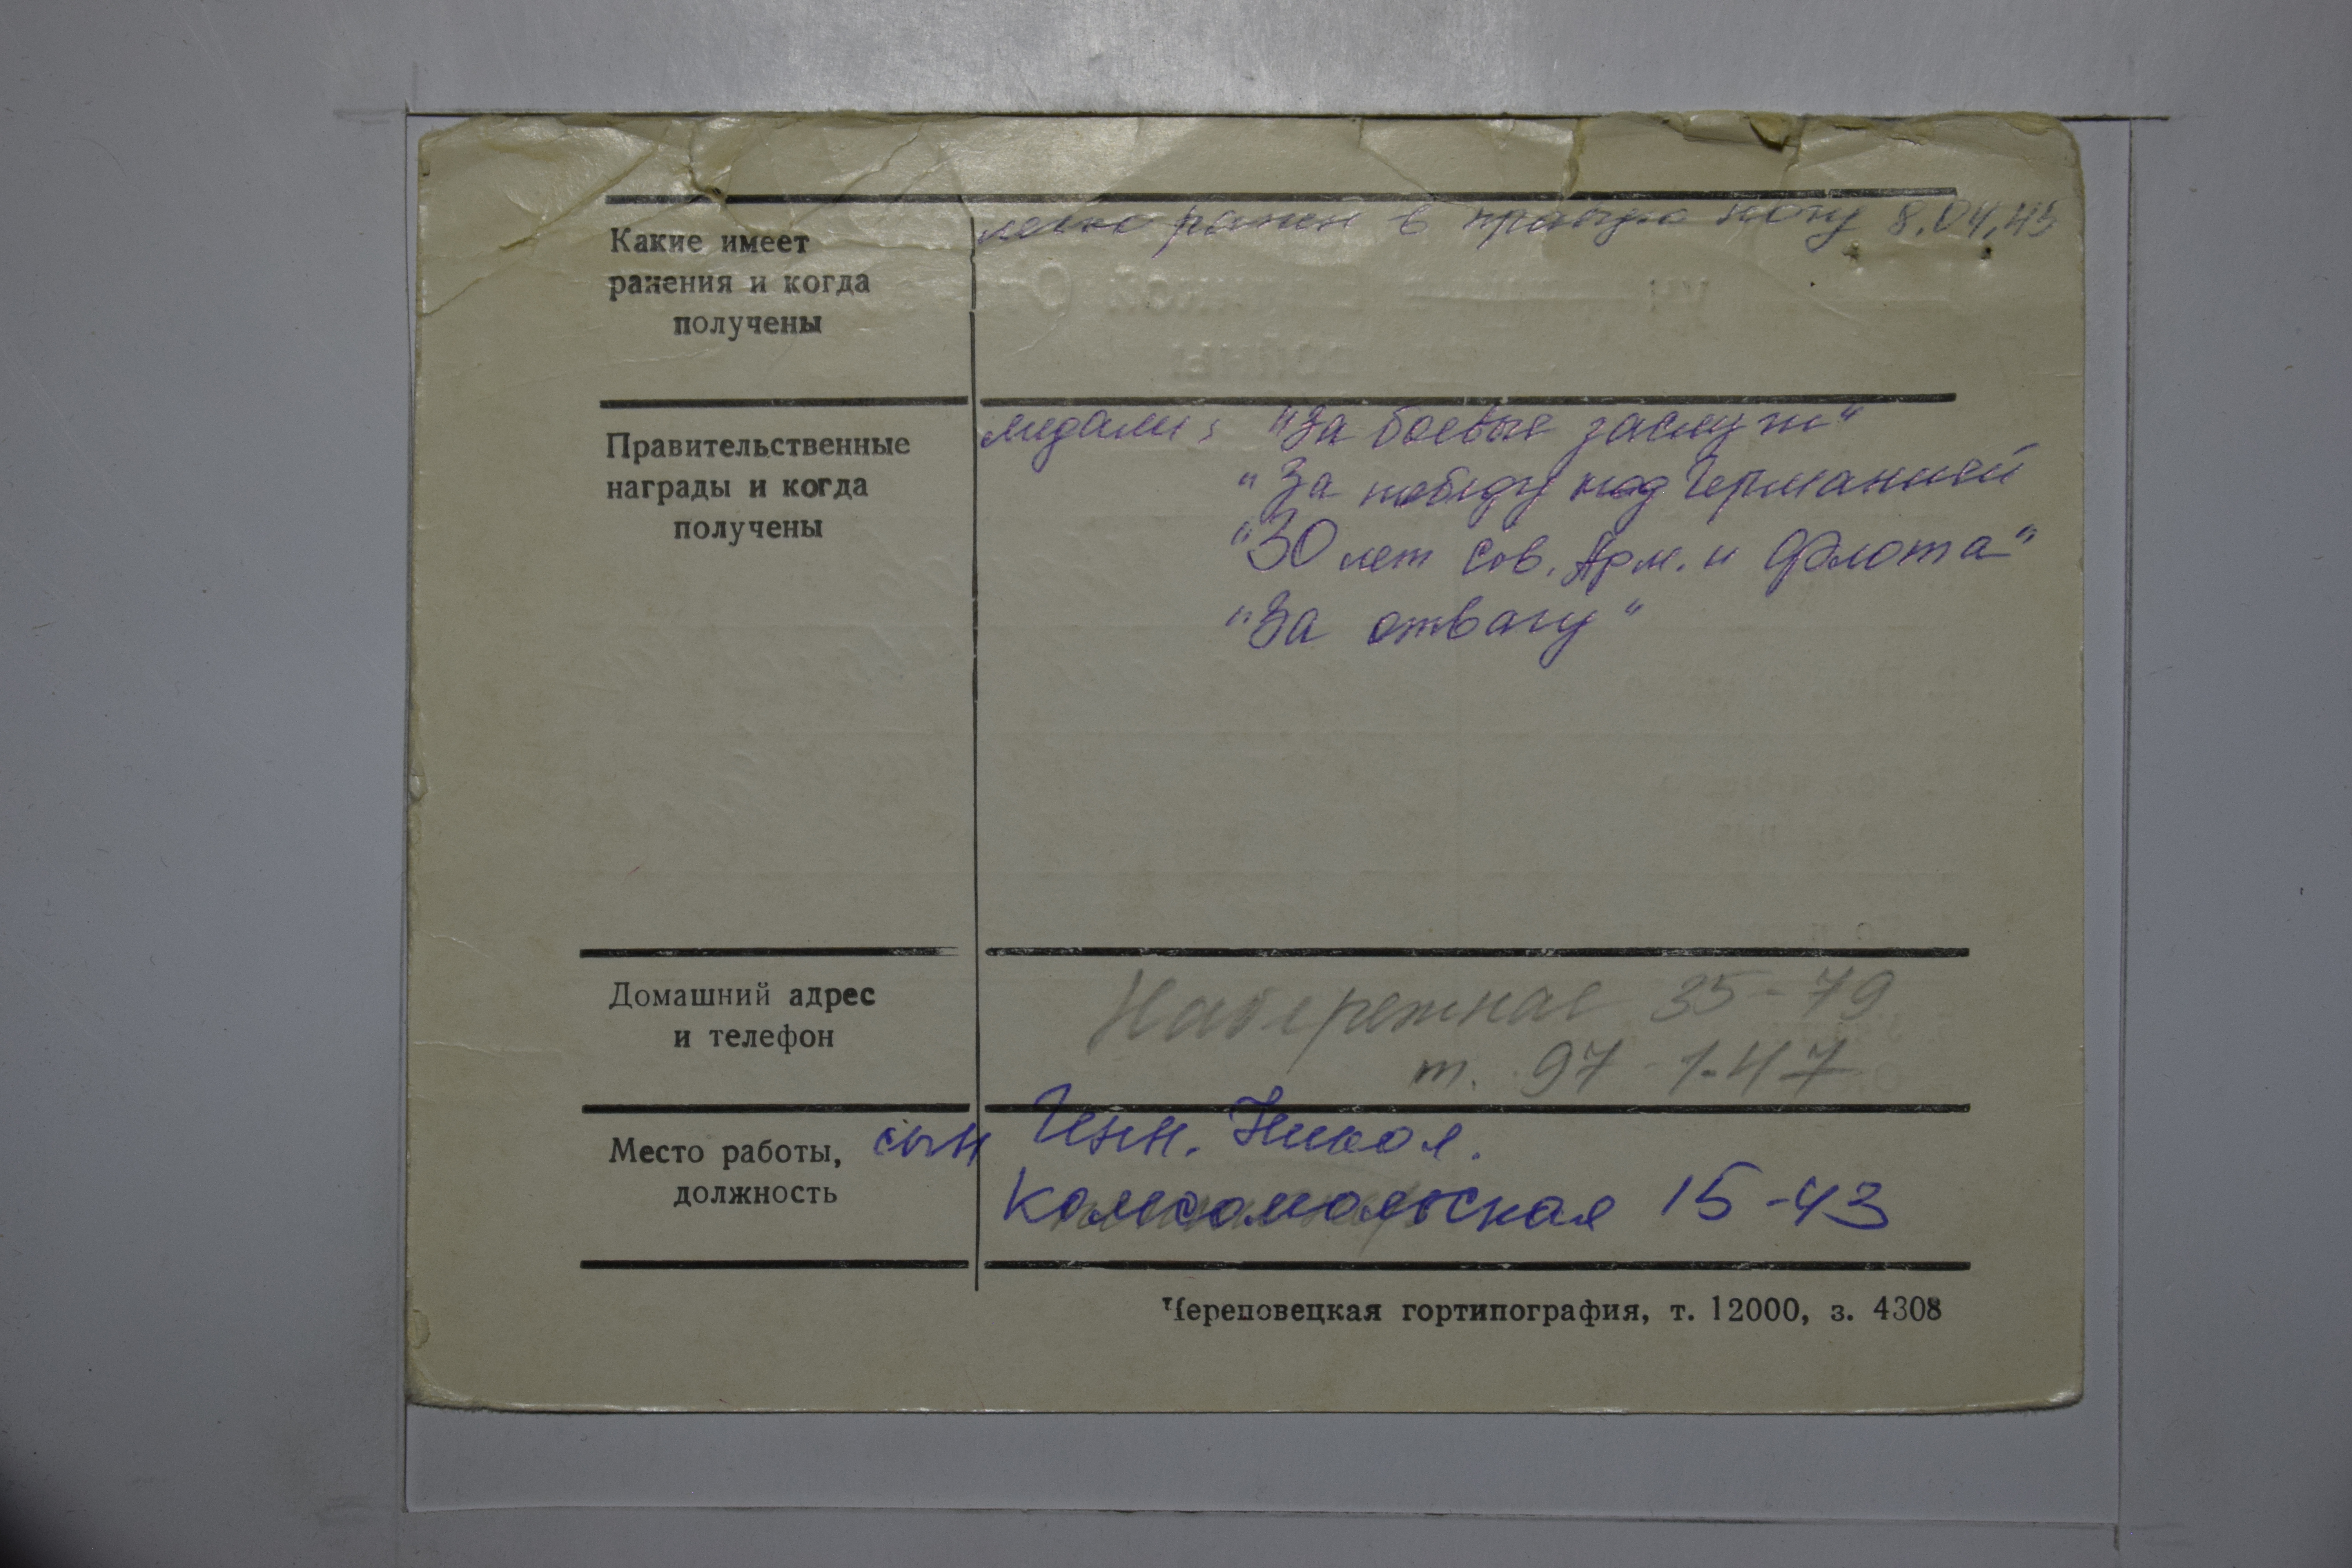 Какие имеет
ранения и когда
получены
легко ранен в правую ногу 8.04.45
Правительственные
награды и когда
получены
медали: "За боевые заслуги"
"За победу над Германией
"30 лет Сов. Арм. и Флота"
"За отвагу"
Домашний адрес
и телефон
Набережная 35-79
т. 97-1-47
Место работы,
должность
сын Инн. Никол.
Комсомольская 15-43
Череповецкая гортипография, т. 12000, з. 4308